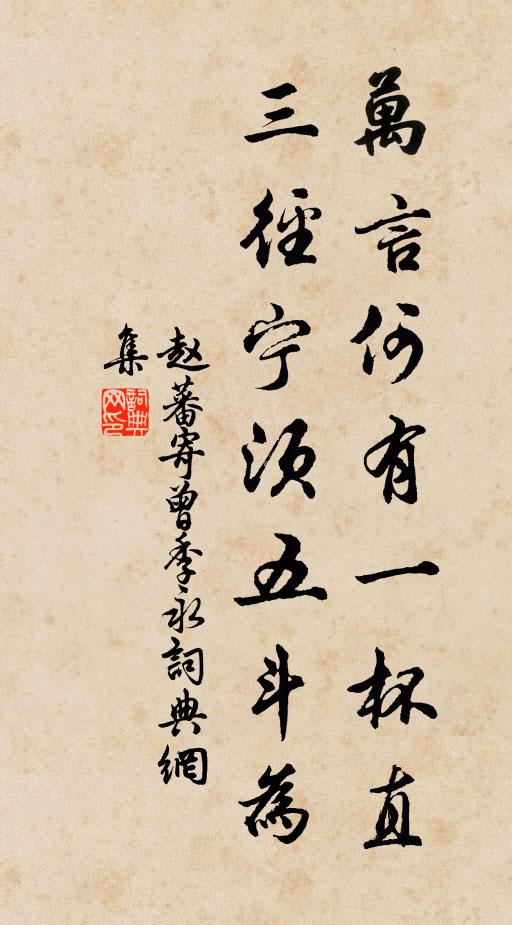 萬言何有一杯直
三徑宁須五斗為
赵蕃寄曾季永詞典網
集
詞典网印